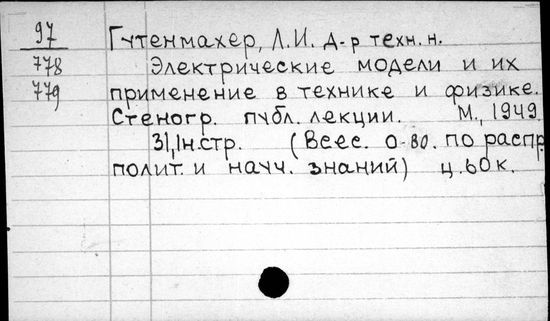 97 Гутенмахер, Л.И. д-р техн. н.
778 Электрические модели и их
779 применение в технике и физике.
Стеногр. публ. лекции. М., 1949.
31,1н.стр. (Всес. о-во. по распр.
полит. и науч. знаний) ц. 60к.